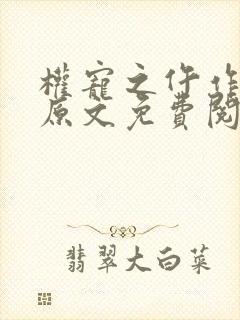 權寵之仵作
原文免費閱
翡翠大白菜